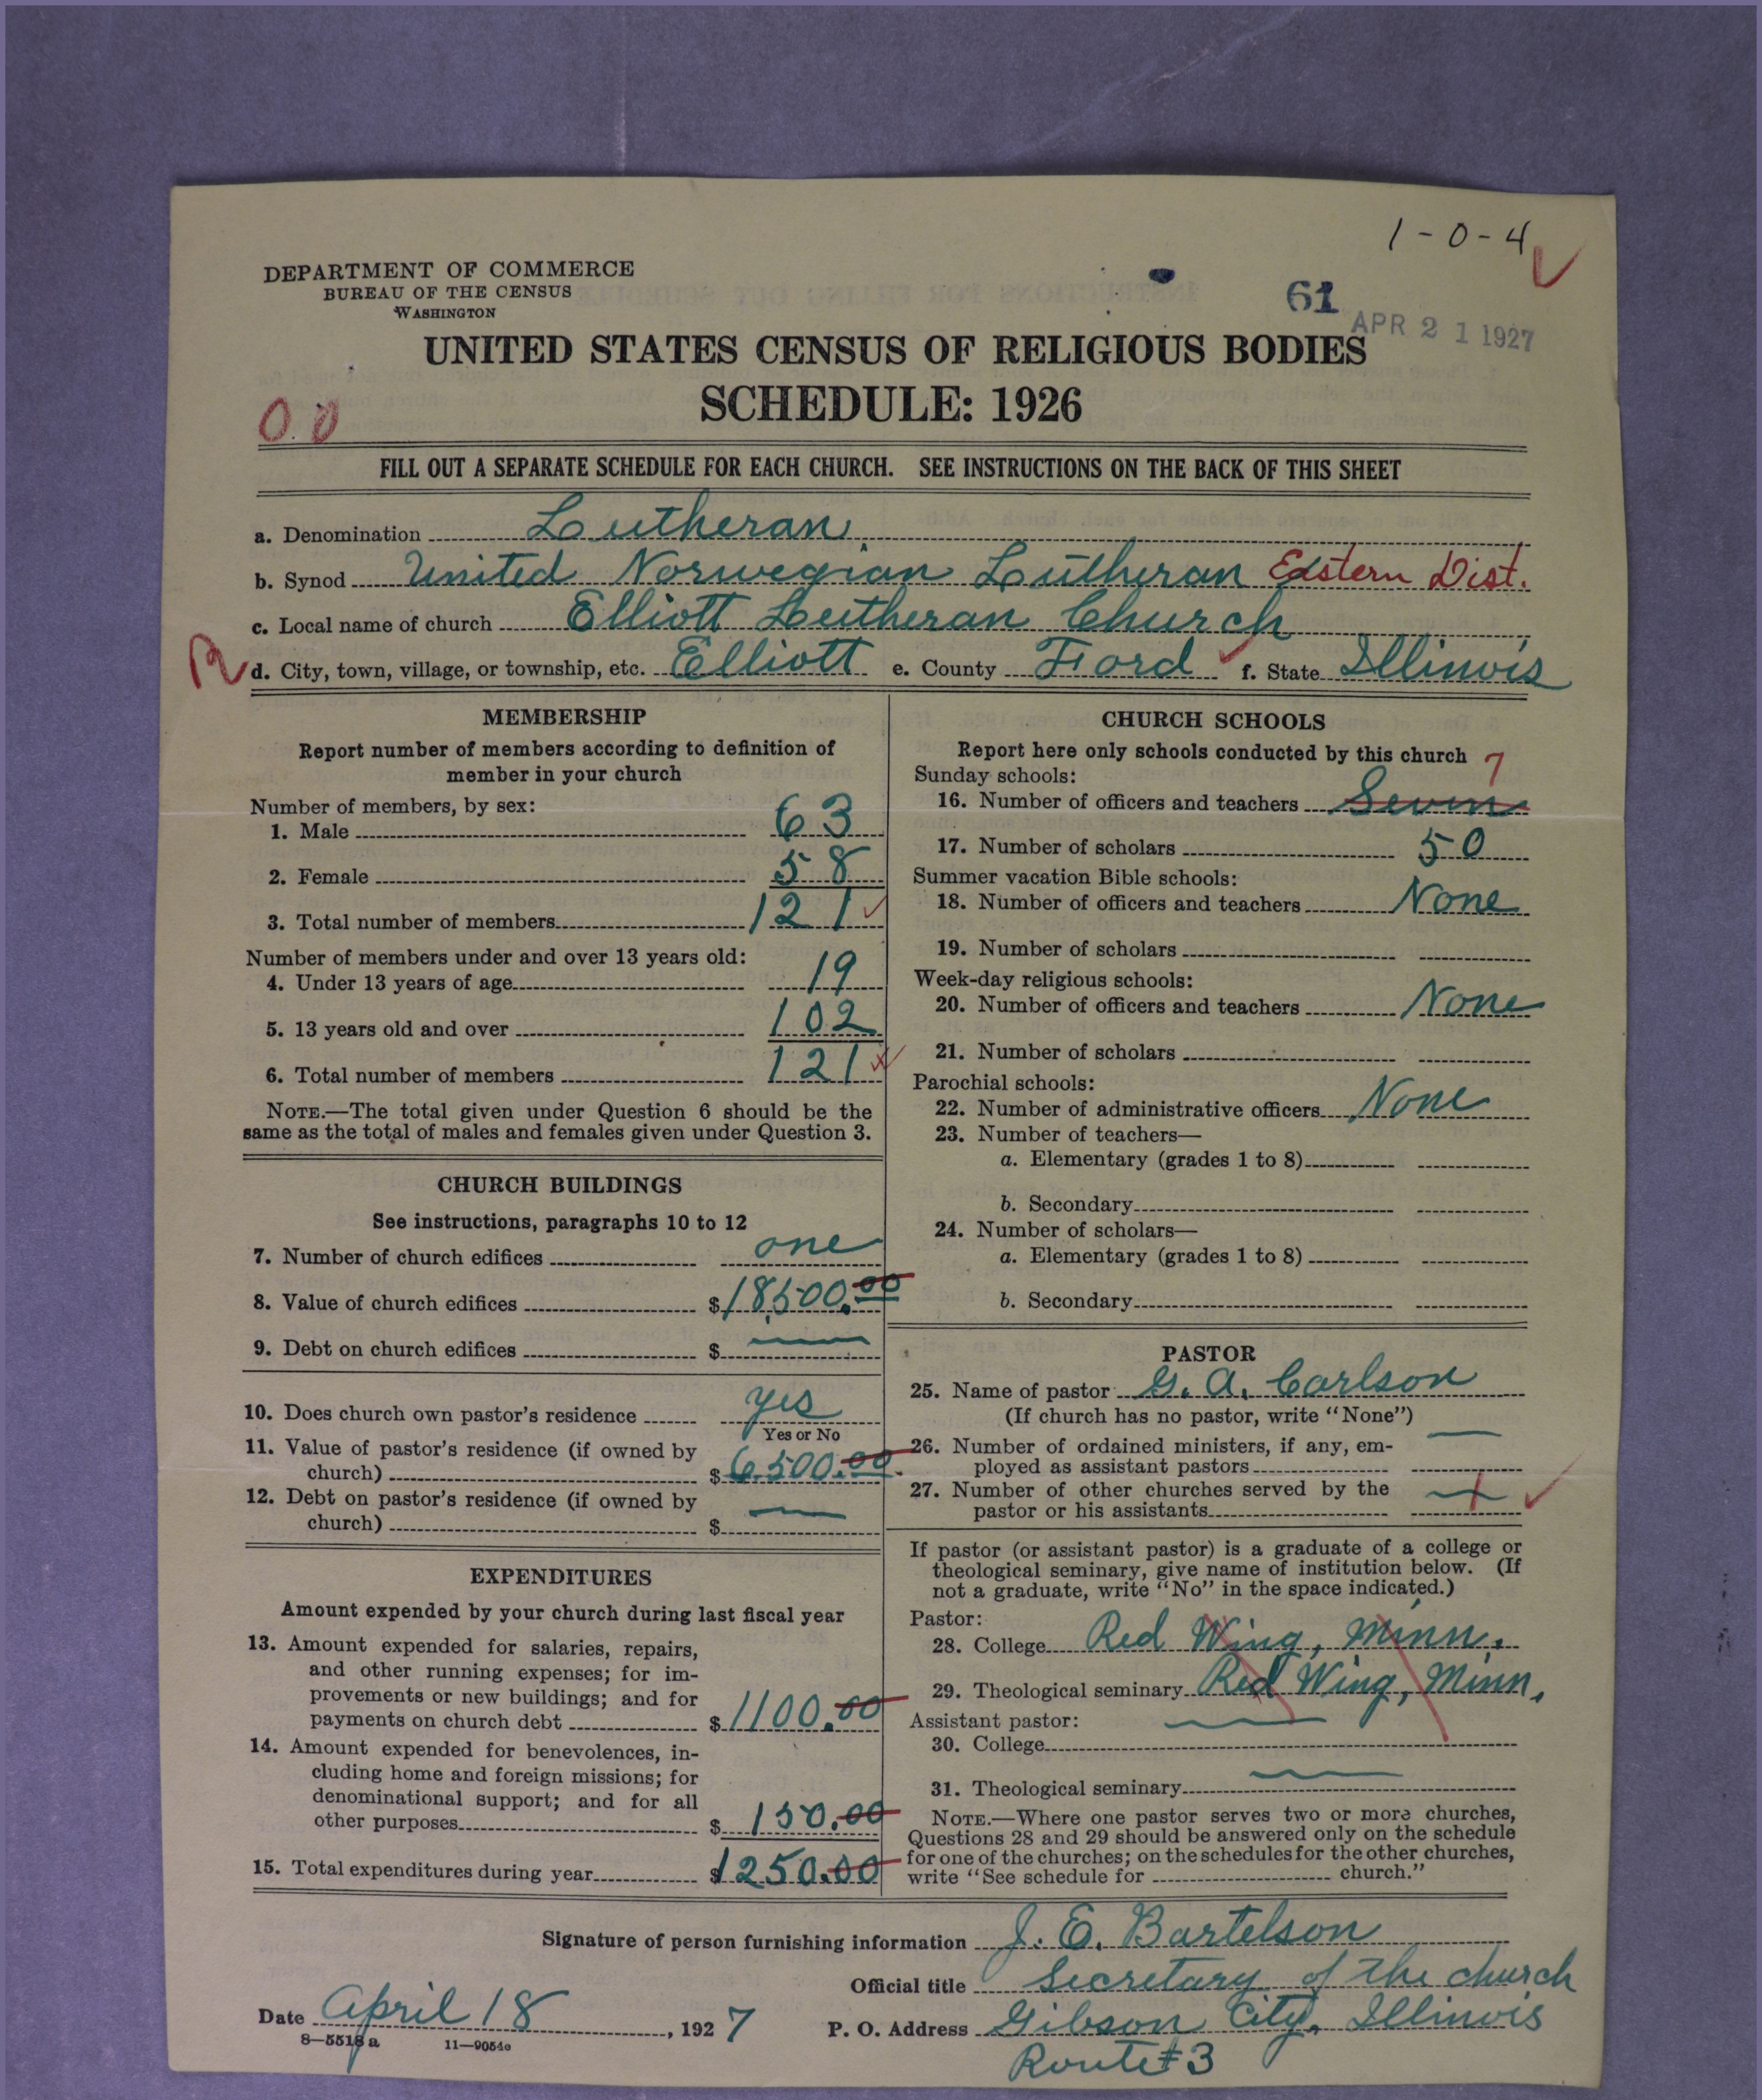 1-0-4
DEPARTMENT OF COMMERCE
BUREAU OF THE CENSUS
WASHINGTON
61
APR 21 1927
UNITED STATES CENSUS OF RELIGIOUS BODIES
SCHEDULE: 1926
0.0
FILL OUT A SEPARATE SCHEDULE FOR EACH CHURCH. SEE INSTRUCTIONS ON THE BACK OF THIS SHEET
a. Denomination Lutheran
b. Synod United Norwegian Lutheran Eastern Dist.
c. Local name of church Elliott Lutheran Church
R d. City, town, village, or township, etc. Elliott e. County Ford f. State Illinois
MEMBERSHIP
Report number of members according to definition of
member in your church
Number of members, by sex:
1. Male 63
2. Female 58
3. Total number of members 121
Number of members under and over 13 years old:
4. Under 13 years of age 19
5. 13 years old and over 102
6. Total number of members 121
NOTE.—The total given under Question 6 should be the
same as the total of males and females given under Question 3.
CHURCH BUILDINGS
See instructions, paragraphs 10 to 12
7. Number of church edifices one
8. Value of church edifices $18,500.00
9. Debt on church edifices $ —
10. Does church own pastor's residence yes
Yes or No
11. Value of pastor's residence (if owned by
church) $6500.00
12. Debt on pastor's residence (if owned by
church) $ —
EXPENDITURES
Amount expended by your church during last fiscal year
13. Amount expended for salaries, repairs,
and other running expenses; for im-
provements or new buildings; and for
payments on church debt $1100.00
14. Amount expended for benevolences, in-
cluding home and foreign missions; for
denominational support; and for all
other purposes $150.00
15. Total expenditures during year $1250.00
CHURCH SCHOOLS
Report here only schools conducted by this church 7
Sunday schools:
16. Number of officers and teachers Seven
17. Number of scholars 50
Summer vacation Bible schools:
18. Number of officers and teachers None
19. Number of scholars
Week-day religious schools:
20. Number of officers and teachers None
21. Number of scholars
Parochial schools:
22. Number of administrative officers None
23. Number of teachers—
a. Elementary (grades 1 to 8)
b. Secondary
24. Number of scholars—
a. Elementary (grades 1 to 8)
b. Secondary
PASTOR
25. Name of pastor G. A. Carlson
(If church has no pastor, write "None")
26. Number of ordained ministers, if any, em-
ployed as assistant pastors —
27. Number of other churches served by the
pastor or his assistants 1
If pastor (or assistant pastor) is a graduate of a college or
theological seminary, give name of institution below. (If
not a graduate, write "No" in the space indicated.)
Pastor:
28. College Red Wing, Minn.
29. Theological seminary Red Wing, Minn.
Assistant pastor:
30. College —
31. Theological seminary —
NOTE.—Where one pastor serves two or more churches,
Questions 28 and 29 should be answered only on the schedule
for one of the churches; on the schedules for the other churches,
write "See schedule for church."
Signature of person furnishing information J. E. Bartelson
Official title Secretary of the church
Date April 18, 1927 P. O. Address Gibson City, Illinois
Route #3
8—5518 a 11—9054a